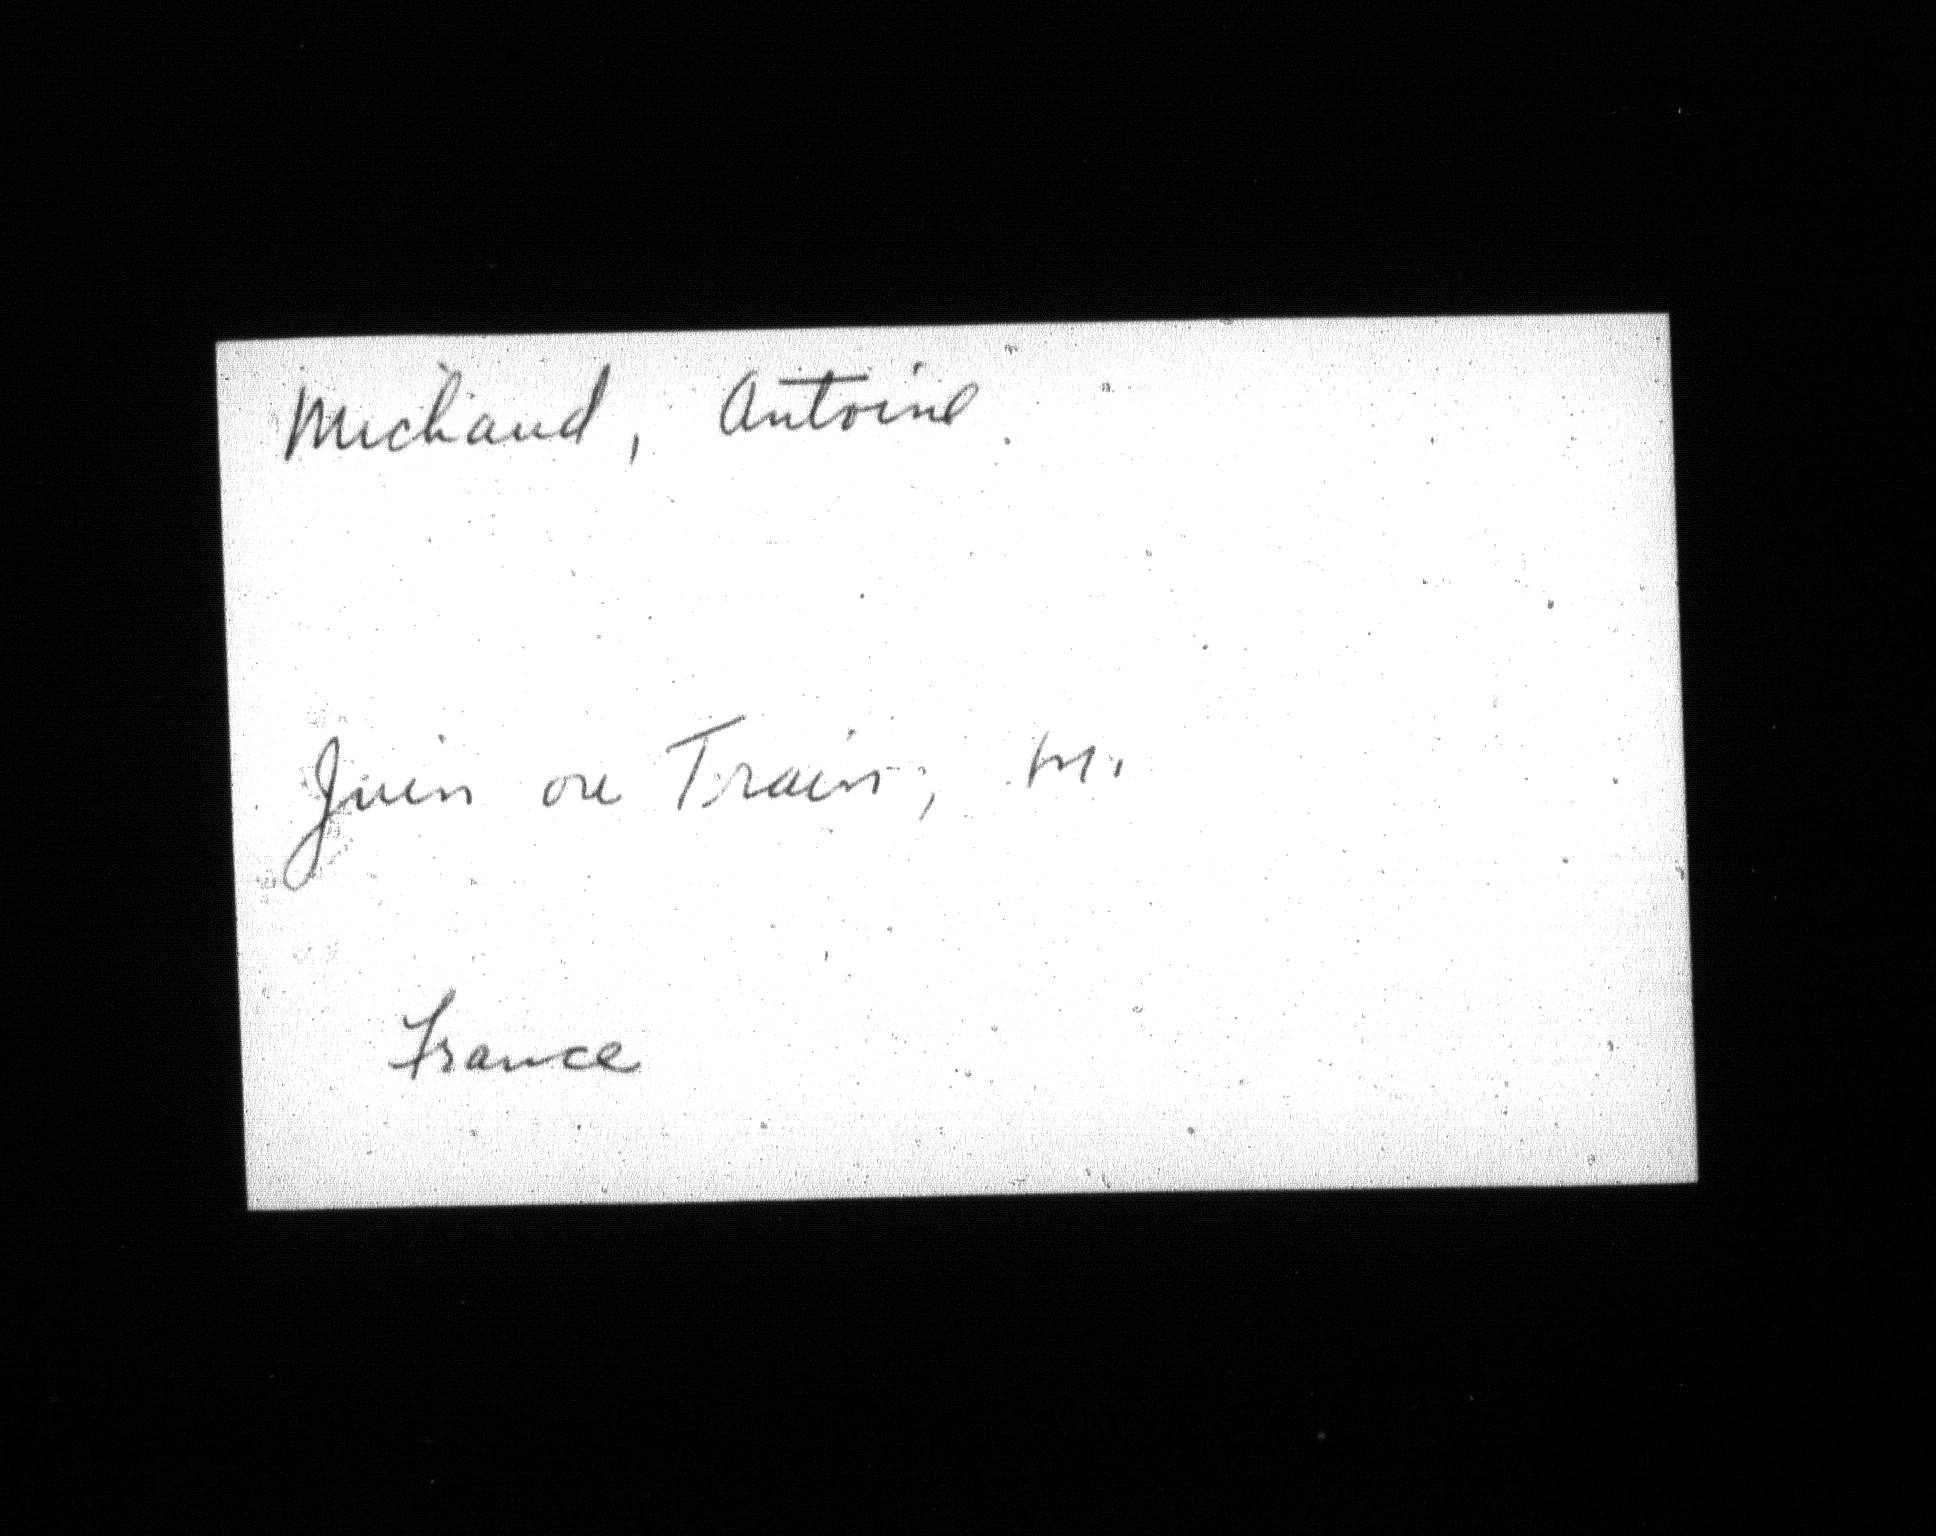 Michaud, Antoine
Juin ou Train, M.
France